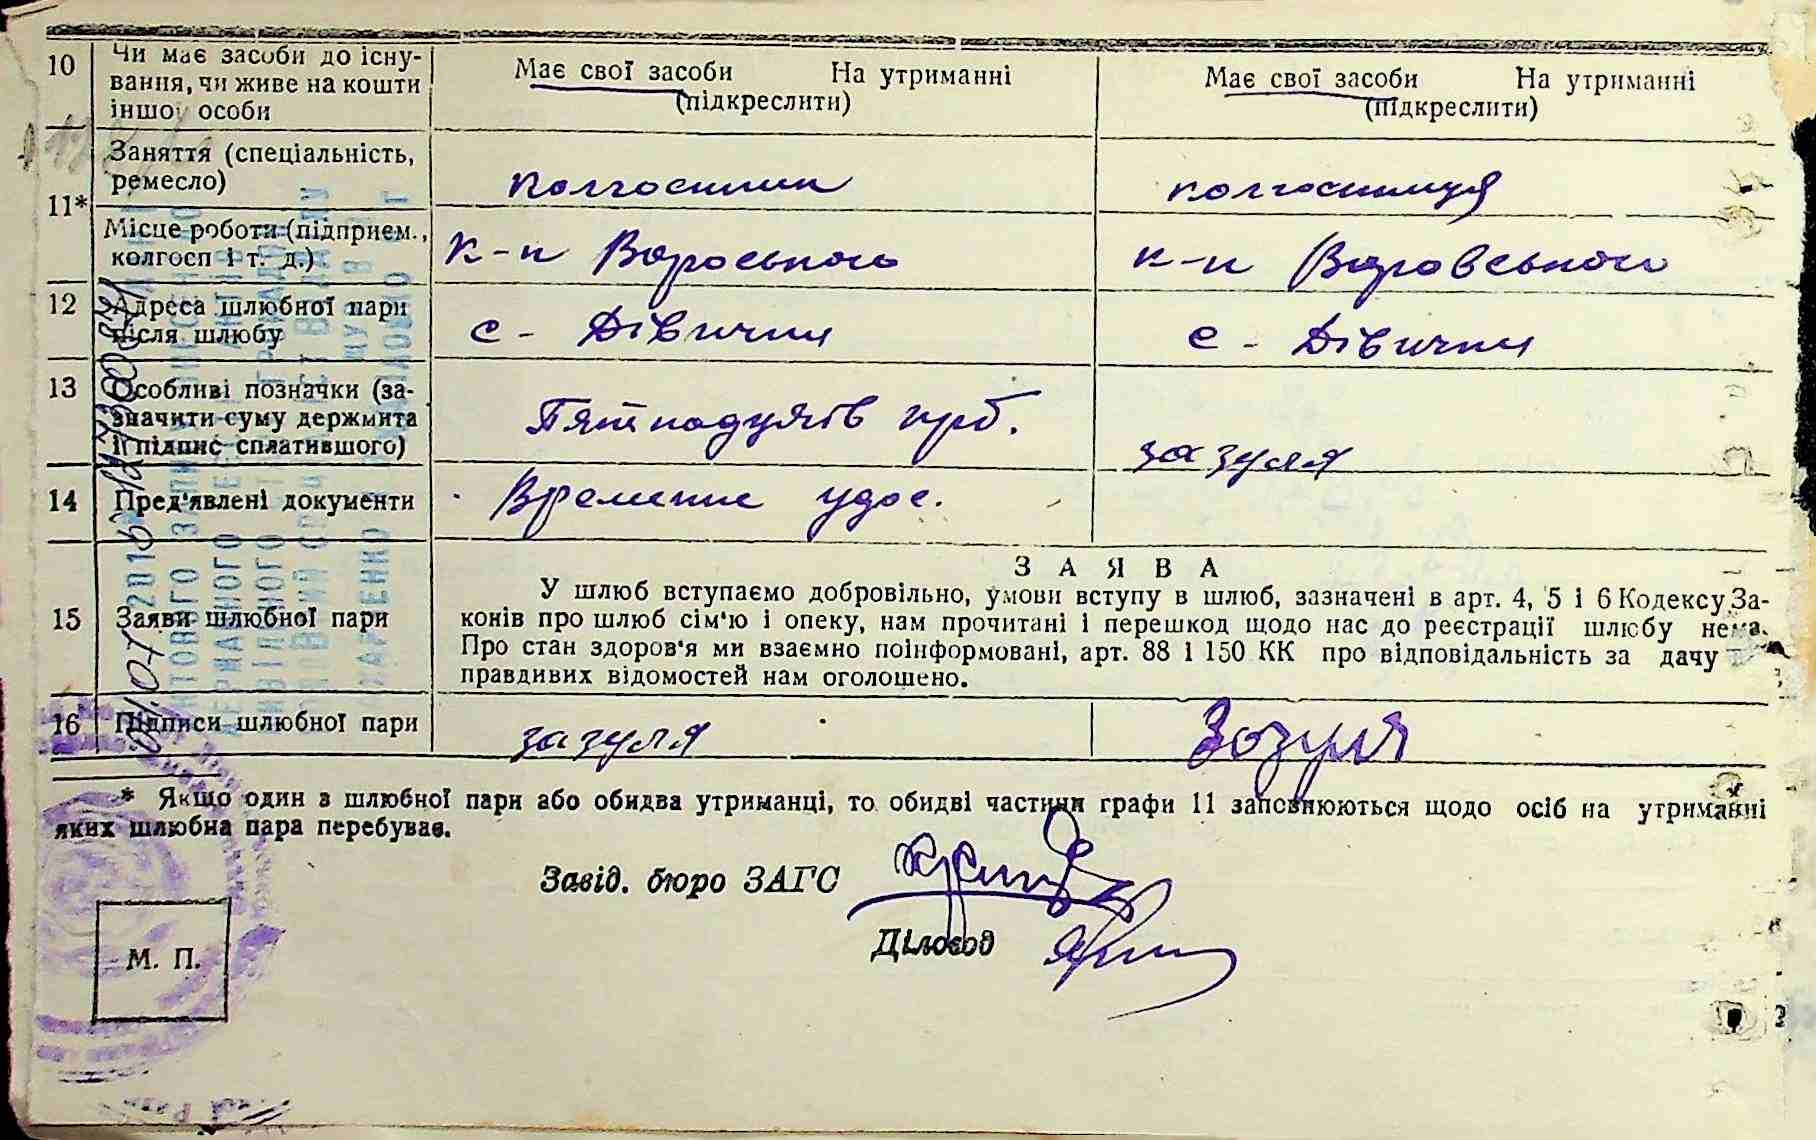 10 Чи має засоби до існу-
вання, чи живе на кошти
іншої особи
Має свої засоби На утриманні
(підкреслити)
Має свої засоби На утриманні
(підкреслити)
11*
Заняття (спеціальність,
ремесло)
колгоспник
колгоспниця
Місце роботи (підприєм.,
колгосп і т. д.)
к-п Вороського
к-п Воровського
12 Адреса шлюбної пари
після шлюбу
с - Дівички
с - Дівички
13 Особливі позначки (за-
значити суму держмита
й підпис сплатившого)
Пятнадцять крб.
зазуля
14 Пред'явлені документи
Времене удос.
15 Заяви шлюбної пари
ЗАЯВА
У шлюб вступаємо добровільно, умови вступу в шлюб, зазначені в арт. 4, 5 і 6 Кодексу За-
конів про шлюб сім'ю і опеку, нам прочитані і перешкод щодо нас до реєстрації шлюбу нема.
Про стан здоров'я ми взаємно поінформовані, арт. 88 і 150 КК про відповідальність за дачу
правдивих відомостей нам оголошено.
16 Підписи шлюбної пари
зазуля
Зозуля
* Якщо один з шлюбної пари або обидва утриманці, то обидві частини графи 11 заповнюються щодо осіб на утриманні
яких шлюбна пара перебуває.
Завід. бюро ЗАГС
Діловод
М. П.